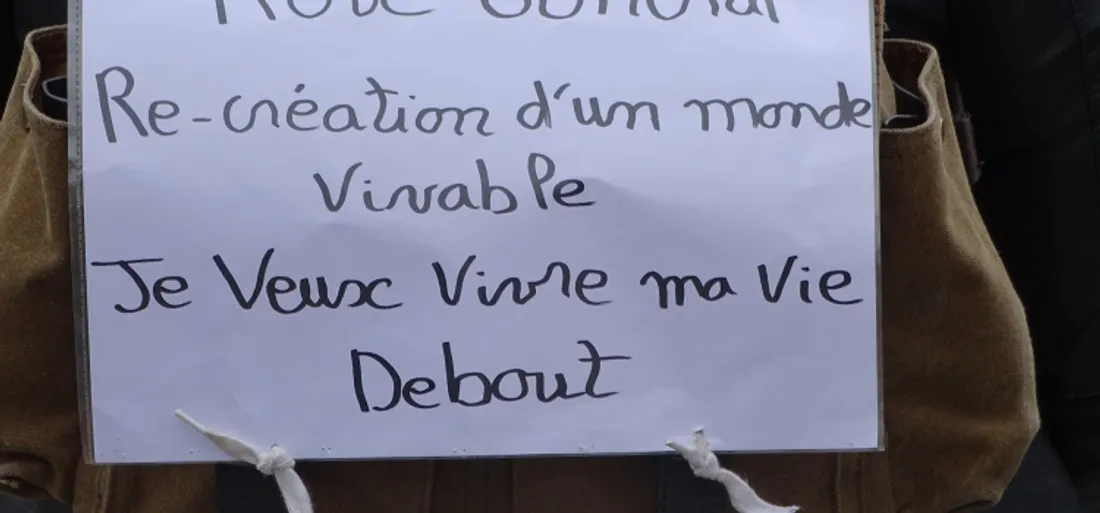 Re-création d'un monde
Vivable
Je Veux Vivre ma Vie
Debout